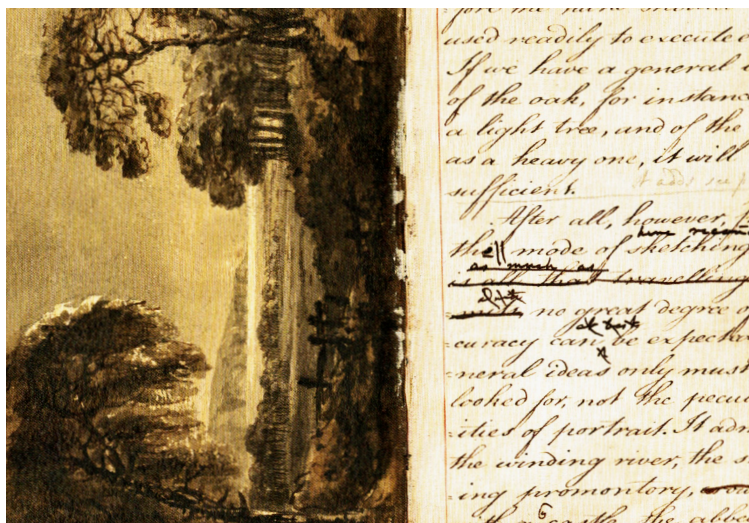 used readily to execute
If we have a general
of the oak, for instanc
a light tree, and of the
as a heavy one, it will
sufficient. It adds
After all, however,
have recom
the mode of sketching
as much as
is all that travelling
no great degree o
at best
curacy can be expected
=neral ideas only must
looked for, not the pecu
=ities of portrait. It adm
the winding river, the s
=ing promontory,
castle, the abbe